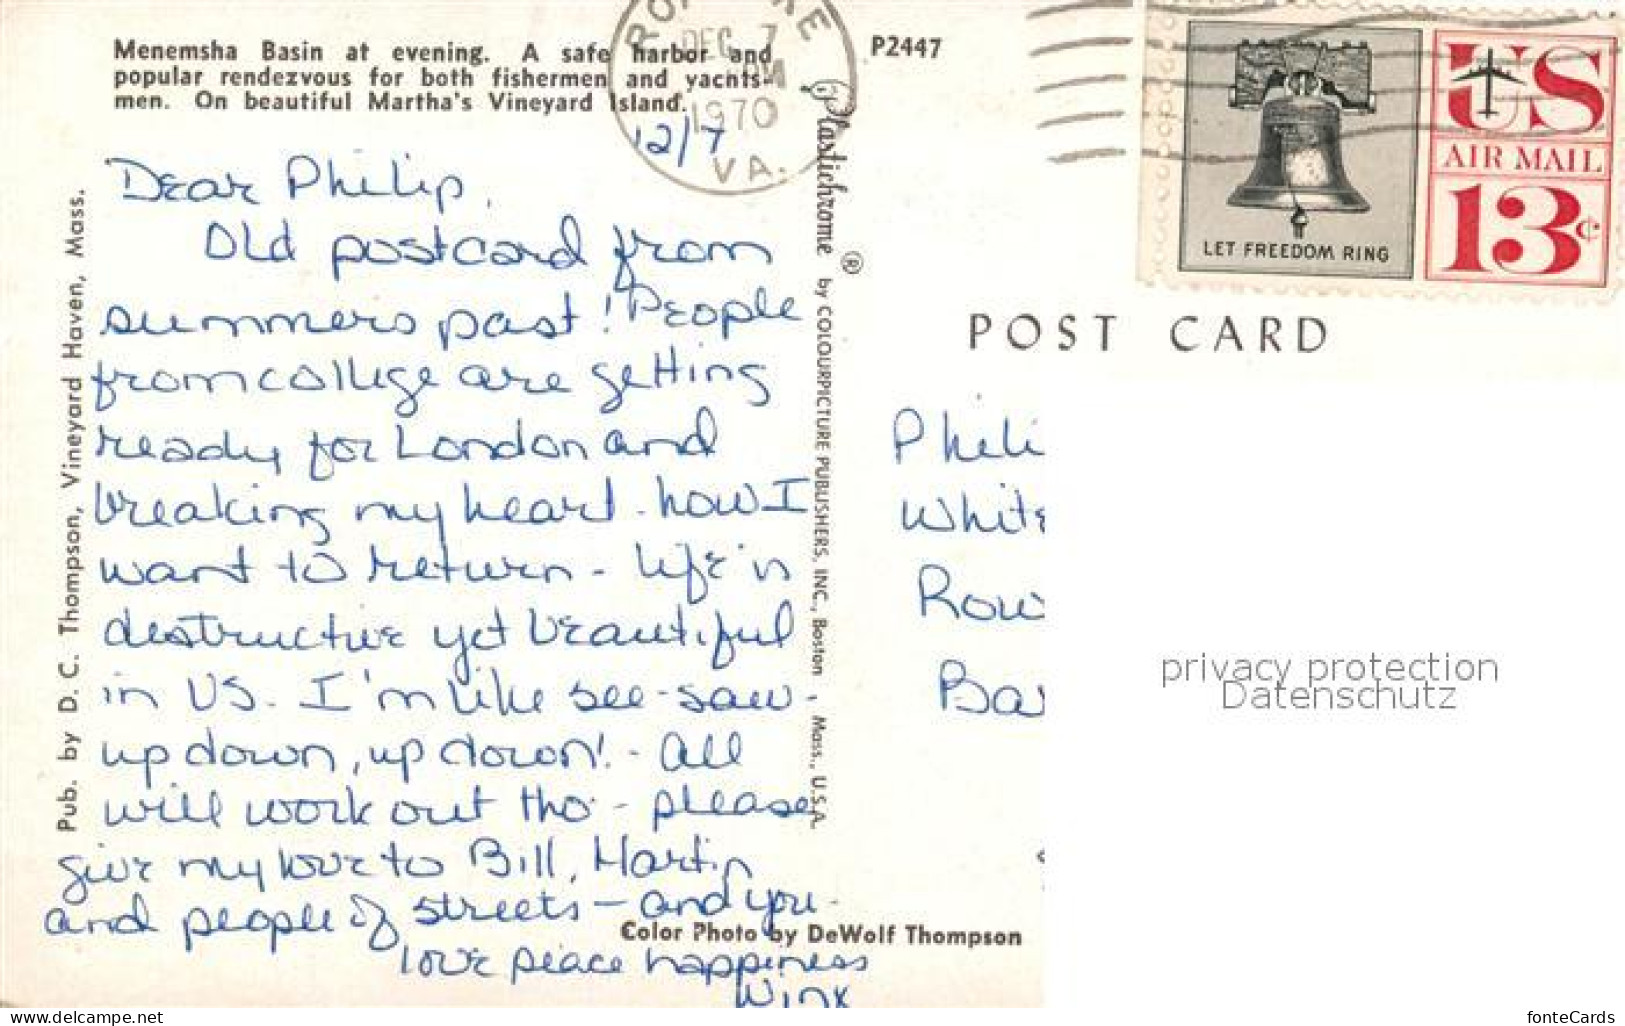 Menemsha Basin at evening. A safe harbor and
popular rendezvous for both fishermen and yachts-
men. On beautiful Martha's Vineyard Island.
P2447
DEC 7
PM
1970
VA.
12/7
Dear Philip,
Old postcard from
summers past! People
from college are getting
ready for London and
breaking my heart. how I
want to return - life is
destructive yet beautiful
in US. I'm like see-saw-
up down, up down! - All
will work out tho - please
give my love to Bill, Martin
and people of streets - and you.
love peace happiness
Winx
Pub. by D. C. Thompson, Vineyard Haven, Mass.
Plastichrome ® by COLOURPICTURE PUBLISHERS, INC., Boston, Mass., U.S.A.
Color Photo by DeWolf Thompson
LET FREEDOM RING
US
AIR MAIL
13¢
POST CARD
Phili
White
Row
Bay
privacy protection
Datenschutz
www.delcampe.net
fonteCards